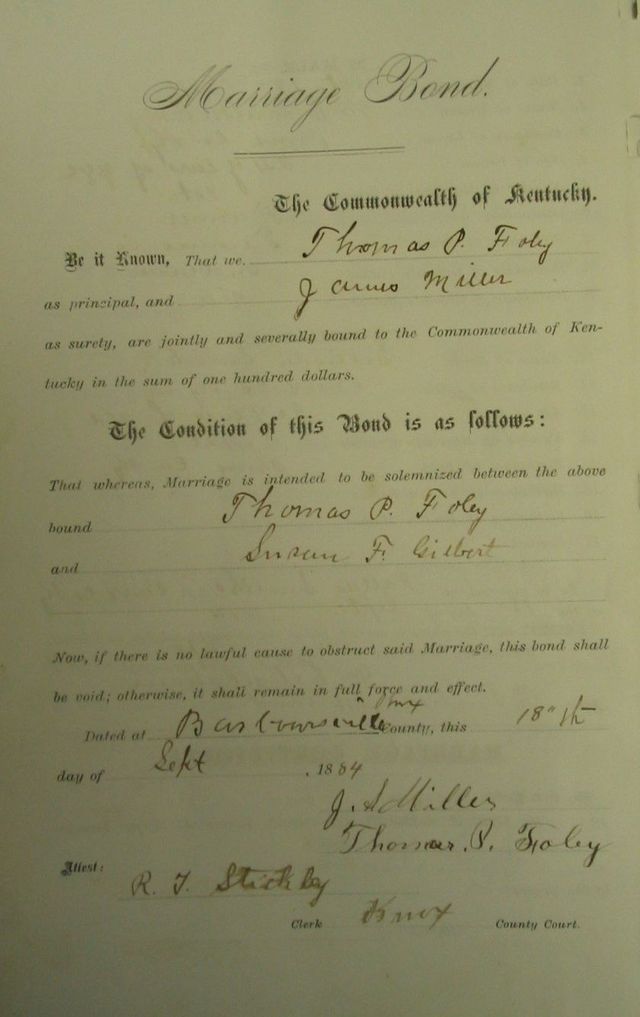 Marriage Bond.
The Commonwealth of Kentucky.
Be it Known, That we Thomas P. Foley
as principal, and James Miller
as surety, are jointly and severally bound to the Commonwealth of Ken-
tucky in the sum of one hundred dollars.
The Condition of this Bond is as follows:
That whereas, Marriage is intended to be solemnized between the above
bound Thomas P. Foley
and Susan F. Gilbert
Now, if there is no lawful cause to obstruct said Marriage, this bond shall
be void; otherwise, it shall remain in full force and effect.
Dated at Barbourville Knx County, this 18"th
day of Sept , 1884
J. S Miller
Thomas. P. Foley
Attest:
R. T. Stickley
Clerk Knox County Court.